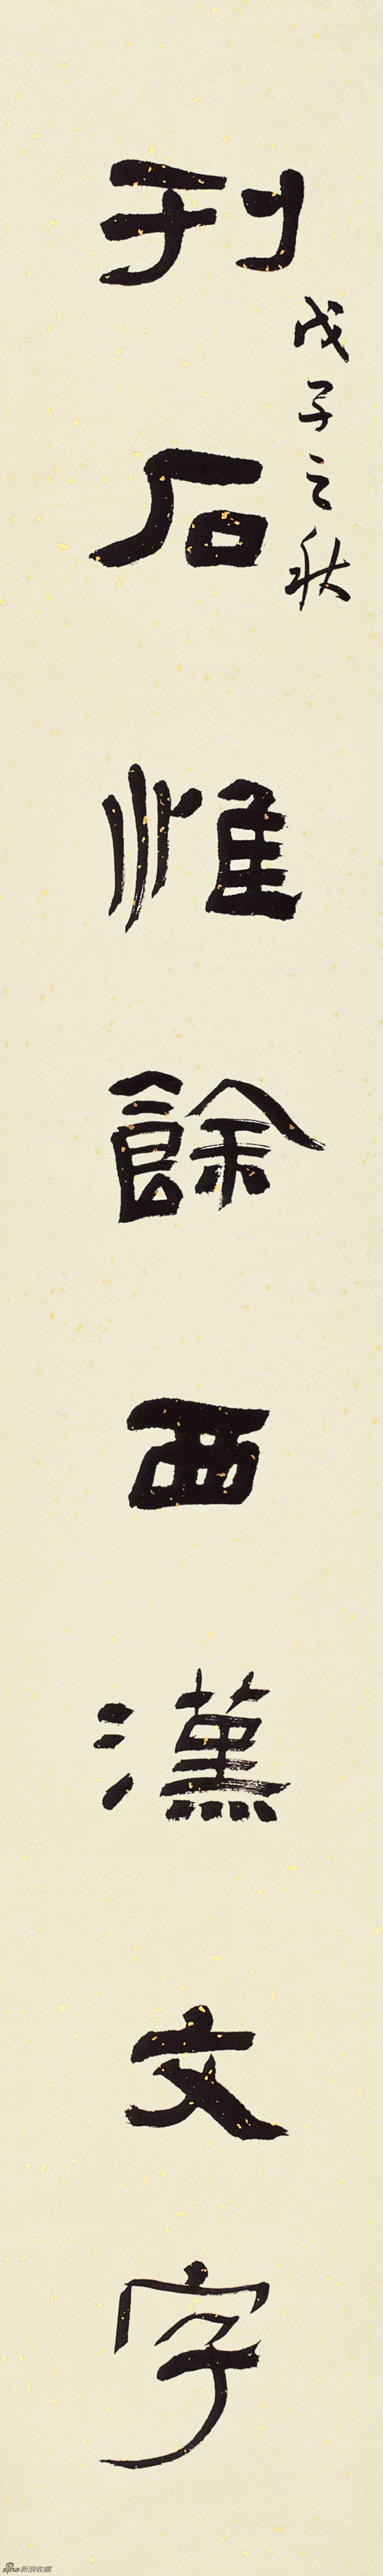 戊子之秋
刊石惟餘西漢文字
sina新浪收藏